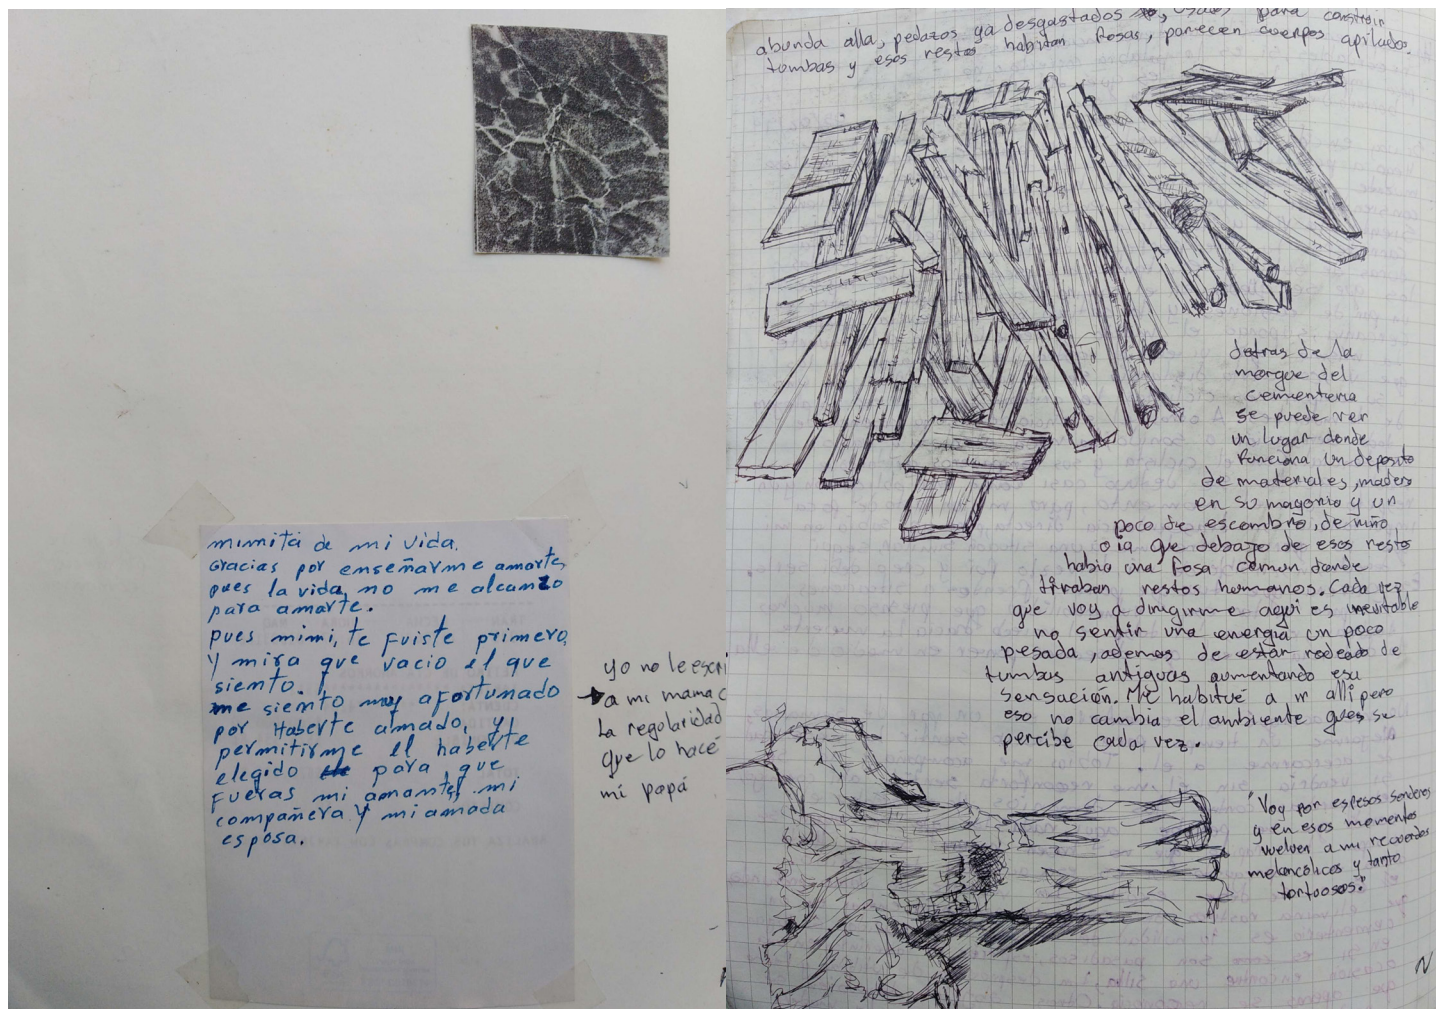 mimita de mi vida.
Gracias por enseñarme amarte,
pues la vida no me alcanzo
para amarte.
pues mimi, te fuiste primero,
y mira que vacio el que
siento.
me siento muy afortunado
por Haberte amado, y
permitirme el haberte
elegido para que
fueras mi amante, mi
compañera y mi amada
esposa.
yo no le escri
a mi mama c
la regolaridad
que lo hace
mi papá
abunda alla, pedazos ya desgastados para construir
tumbas y esos restos habitan fosas, parecen cuerpos apilados.
detras de la
morgue del
cementerio
se puede ver
un lugar donde
funciona un deposito
de materiales, madera
en su mayoria y un
poco de escombro, de niño
oia que debajo de esos restos
habia una fosa comun donde
tiraban restos humanos. Cada vez
que voy a dirigirme aqui es inevitable
no sentir una energia un poco
pesada, ademas de estar rodeado de
tumbas antiguas aumentando esa
sensación. Me habitué a ir alli pero
eso no cambia el ambiente que se
percibe cada vez.
"Voy por espesos senderos
y en esos momentos
vuelven a mi recuerdos
melancolicos y tanto
tortuosos."
N